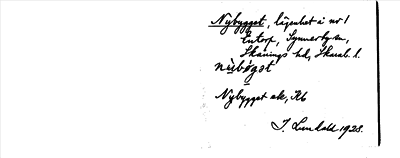 Nybygget, lägenhet å nr 1
Entorp, Synnerby sn,
Skånings hd, Skarab. l.
nẁbøgət
Nybygget ek, Kb
J. Lundahl 1928.